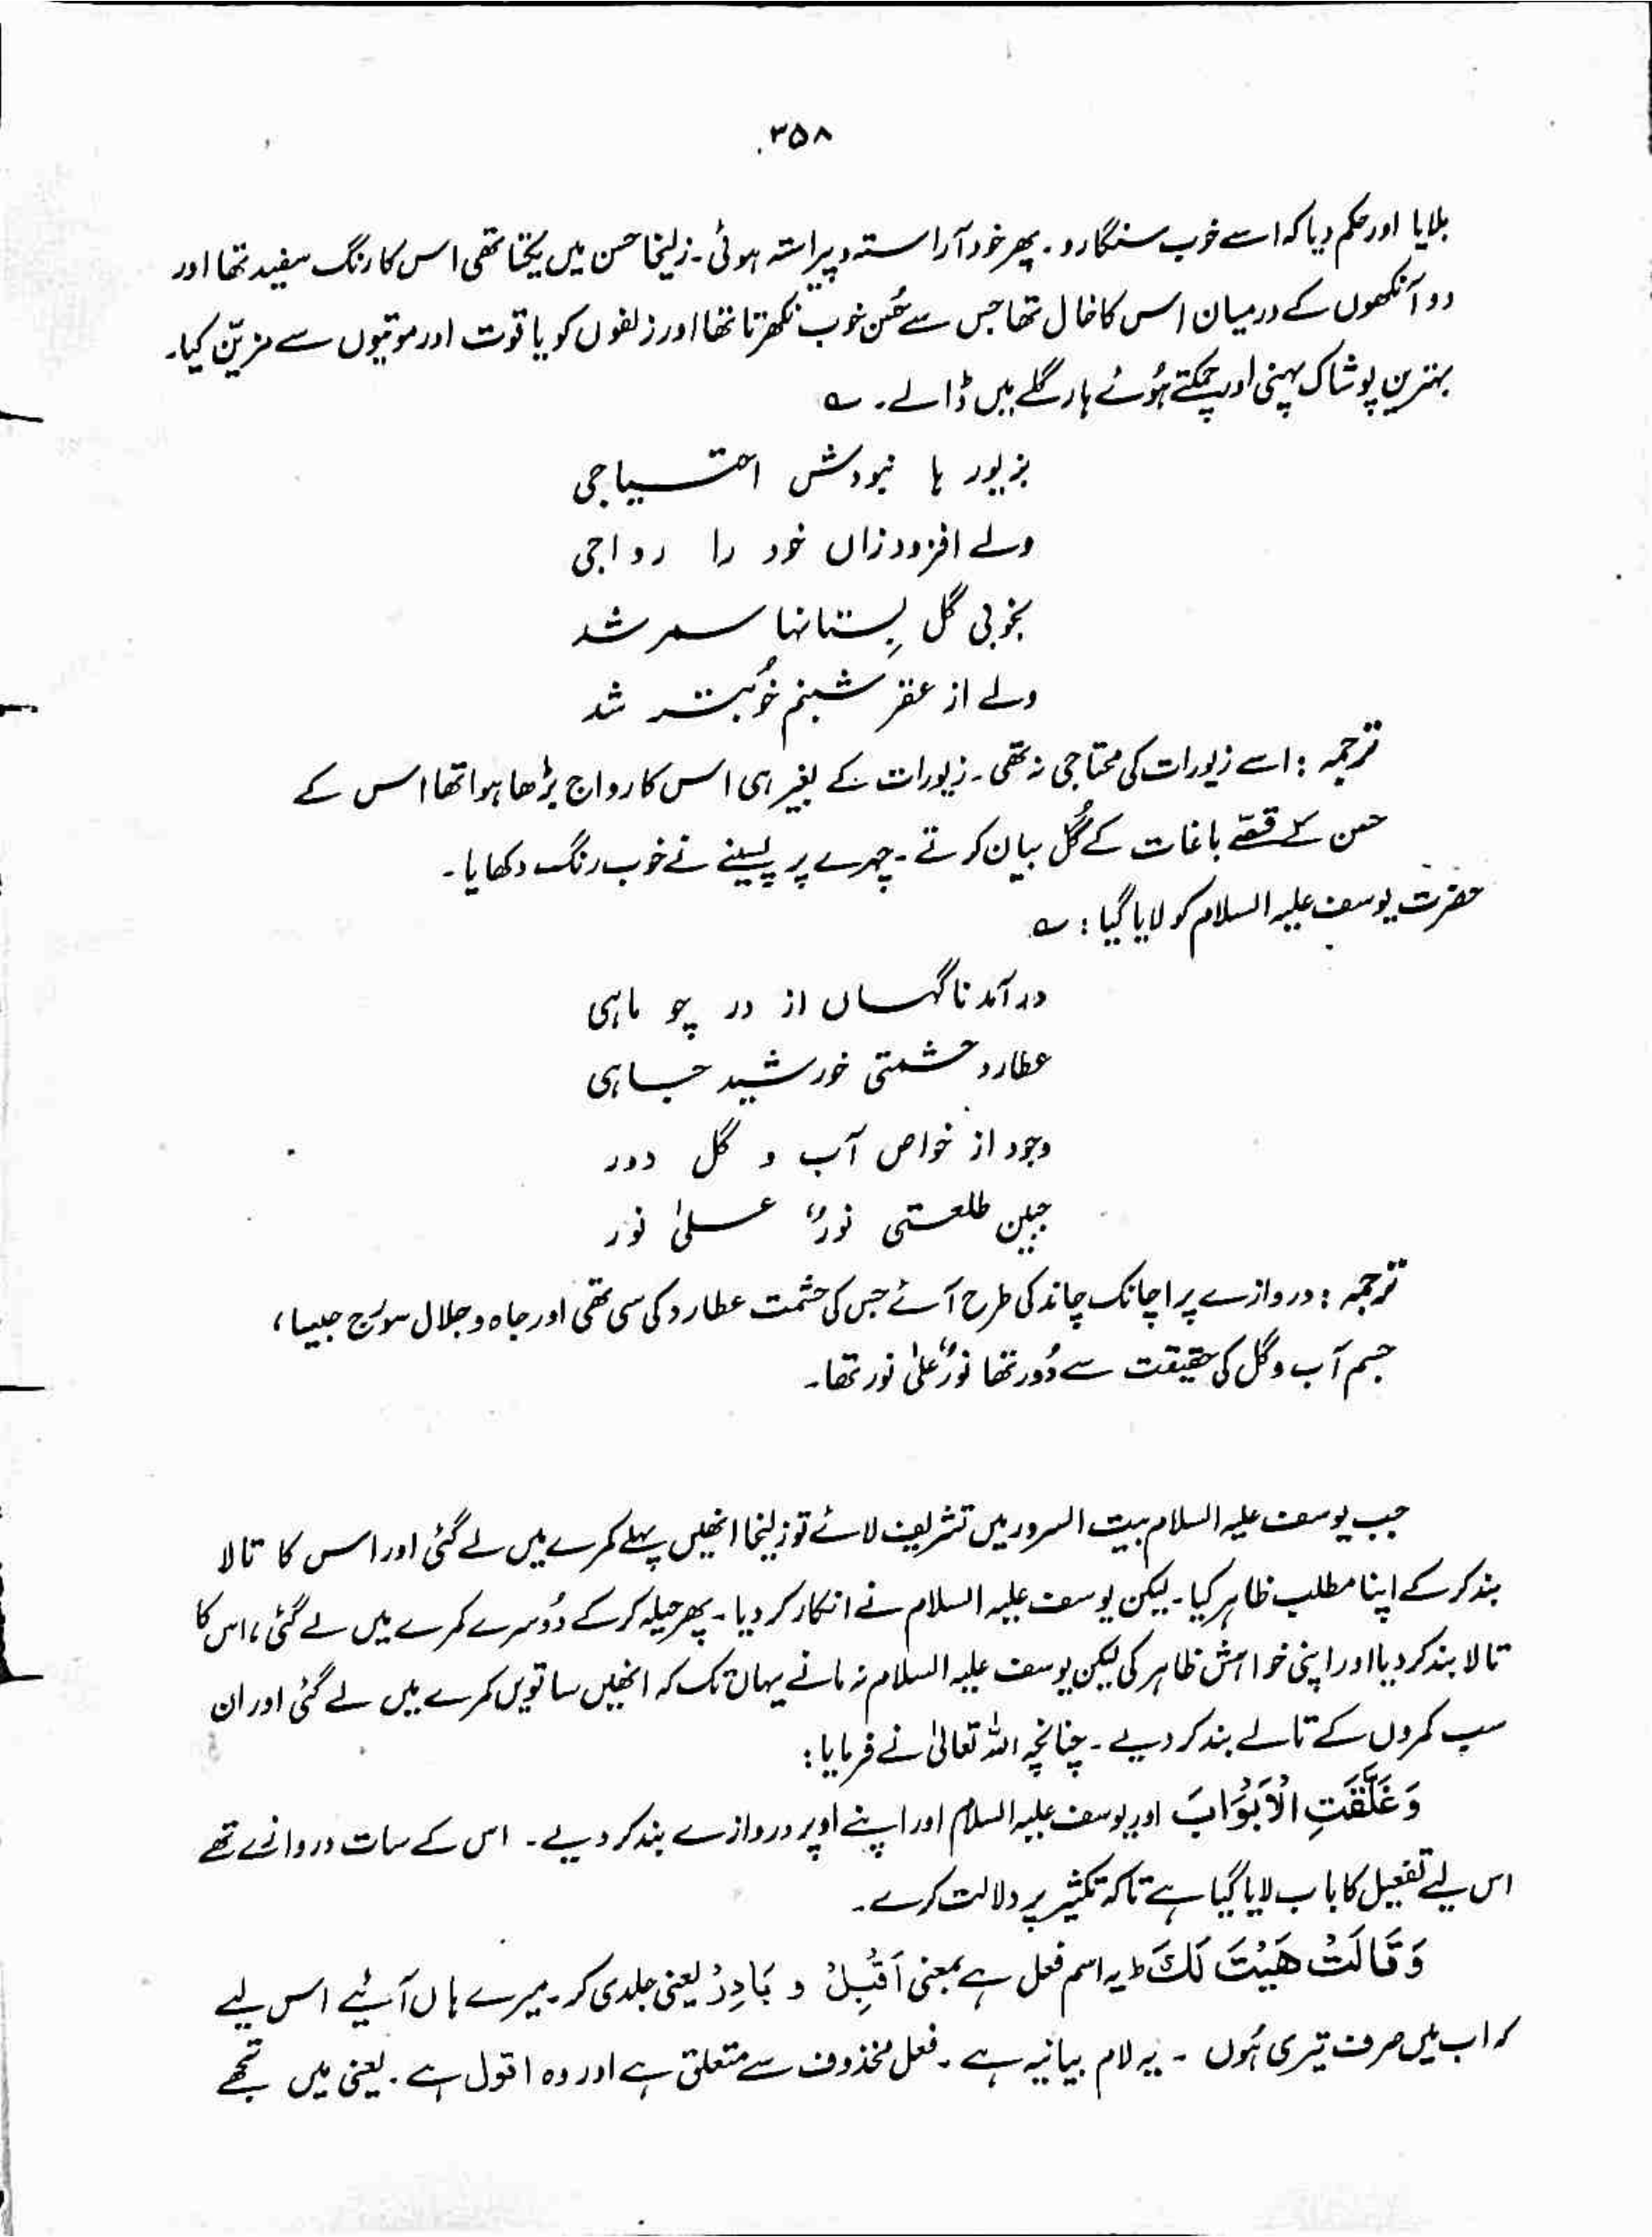 ۳۵۸
بلایا اور حکم دیا کہ اسے خوب سنگارو۔ پھر خود آراستہ و پیراستہ ہوئی۔ زلیخا حسن میں یکتا تھی اس کا رنگ سفید تھا اور
دو آنکھوں کے درمیان اس کا خال تھا جس سے حُسن خوب نکھرتا تھا اور زلفوں کو یاقوت اور موتیوں سے مزیّن کیا۔
بہترین پوشاک پہنی اور چمکتے ہُوئے ہار گلے میں ڈالے۔ ؎
بزیور ہا نبودش احتیاجی
ولے افزود زاں خود را رواجی
بخوبی گل بِستانہا سمر شد
ولے از عقر شبنم خُوبتر شد
ترجمہ : اسے زیورات کی محتاجی نہ تھی۔ زیورات کے بغیر ہی اس کا رواج بڑھا ہوا تھا اس کے
حسن کے قصّے باغات کے گُل بیان کرتے۔ چہرے پر پسینے نے خوب رنگ دکھایا۔
حضرت یوسف علیہ السلام کو لایا گیا : ؎
درآمد ناگہاں از در چو ماہی
عطارد حشمتی خورشید جاہی
وجود از خواص آب و گل دور
جبین طلعتی نورٌ علیٰ نور
ترجمہ : دروازے پر اچانک چاند کی طرح آئے جس کی حشمت عطارد کی سی تھی اور جاہ و جلال سورج جیسا،
جسم آب و گل کی حقیقت سے دُور تھا نورٌ علیٰ نور تھا۔
جب یوسف علیہ السلام بیت السرور میں تشریف لائے تو زلیخا انھیں پہلے کمرے میں لے گئی اور اس کا تالا
بند کر کے اپنا مطلب ظاہر کیا۔ لیکن یوسف علیہ السلام نے انکار کر دیا۔ پھر حیلہ کر کے دُوسرے کمرے میں لے گئی، اس کا
تالا بند کر دیا اور اپنی خواہش ظاہر کی لیکن یوسف علیہ السلام نہ مانے یہاں تک کہ انھیں ساتویں کمرے میں لے گئی اور ان
سب کمروں کے تالے بند کر دیے۔ چنانچہ اللہ تعالیٰ نے فرمایا :
وَغَلَّقَتِ الْاَبْوَابَ اور یوسف علیہ السلام اور اپنے اوپر دروازے بند کر دیے۔ اس کے سات دروازے تھے
اس لیے تفعیل کا باب لایا گیا ہے تاکہ تکثیر پر دلالت کرے۔
وَقَالَتْ هَيْتَ لَكَ ط یہ اسم فعل ہے بمعنی اَقْبِلْ و بَادِرْ یعنی جلدی کر۔ میرے ہاں آئیے اس لیے
کہ اب میں صرف تیری ہُوں ۔ یہ لام بیانیہ ہے ۔ فعل مخذوف سے متعلق ہے اور وہ اقول ہے۔ یعنی میں تجھے